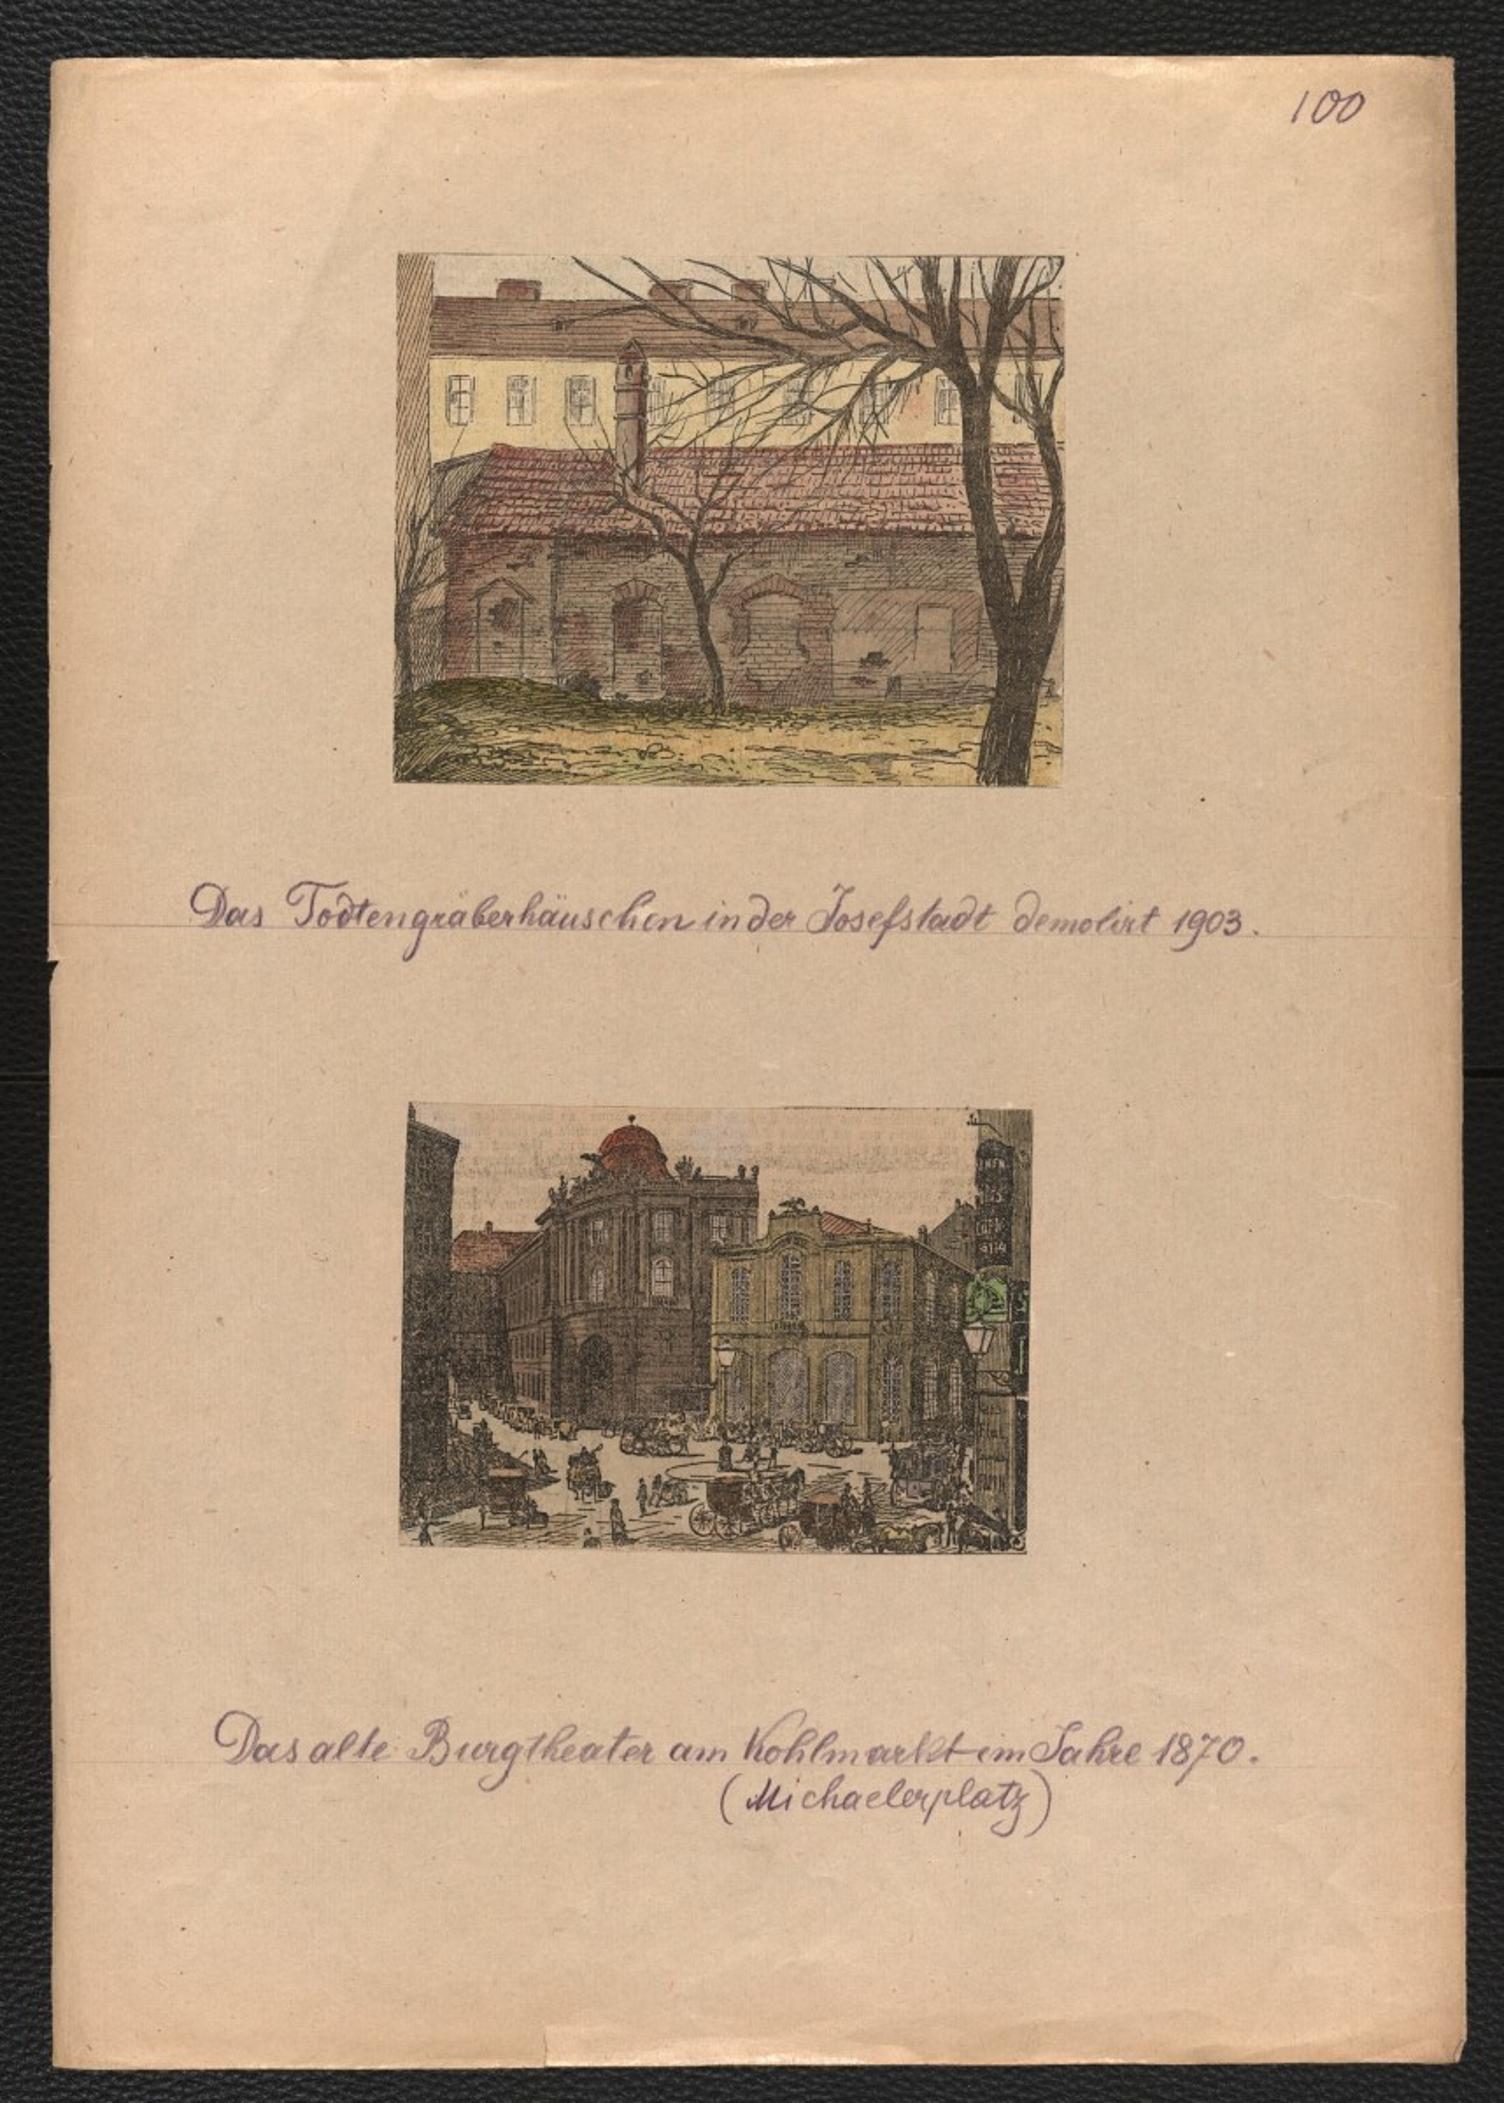 100
Das Todtengräberhäuschen in der Josefstadt demolirt 1903.
Das alte Burgtheater am Kohlmarkt im Jahre 1870.
(Michaelerplatz)